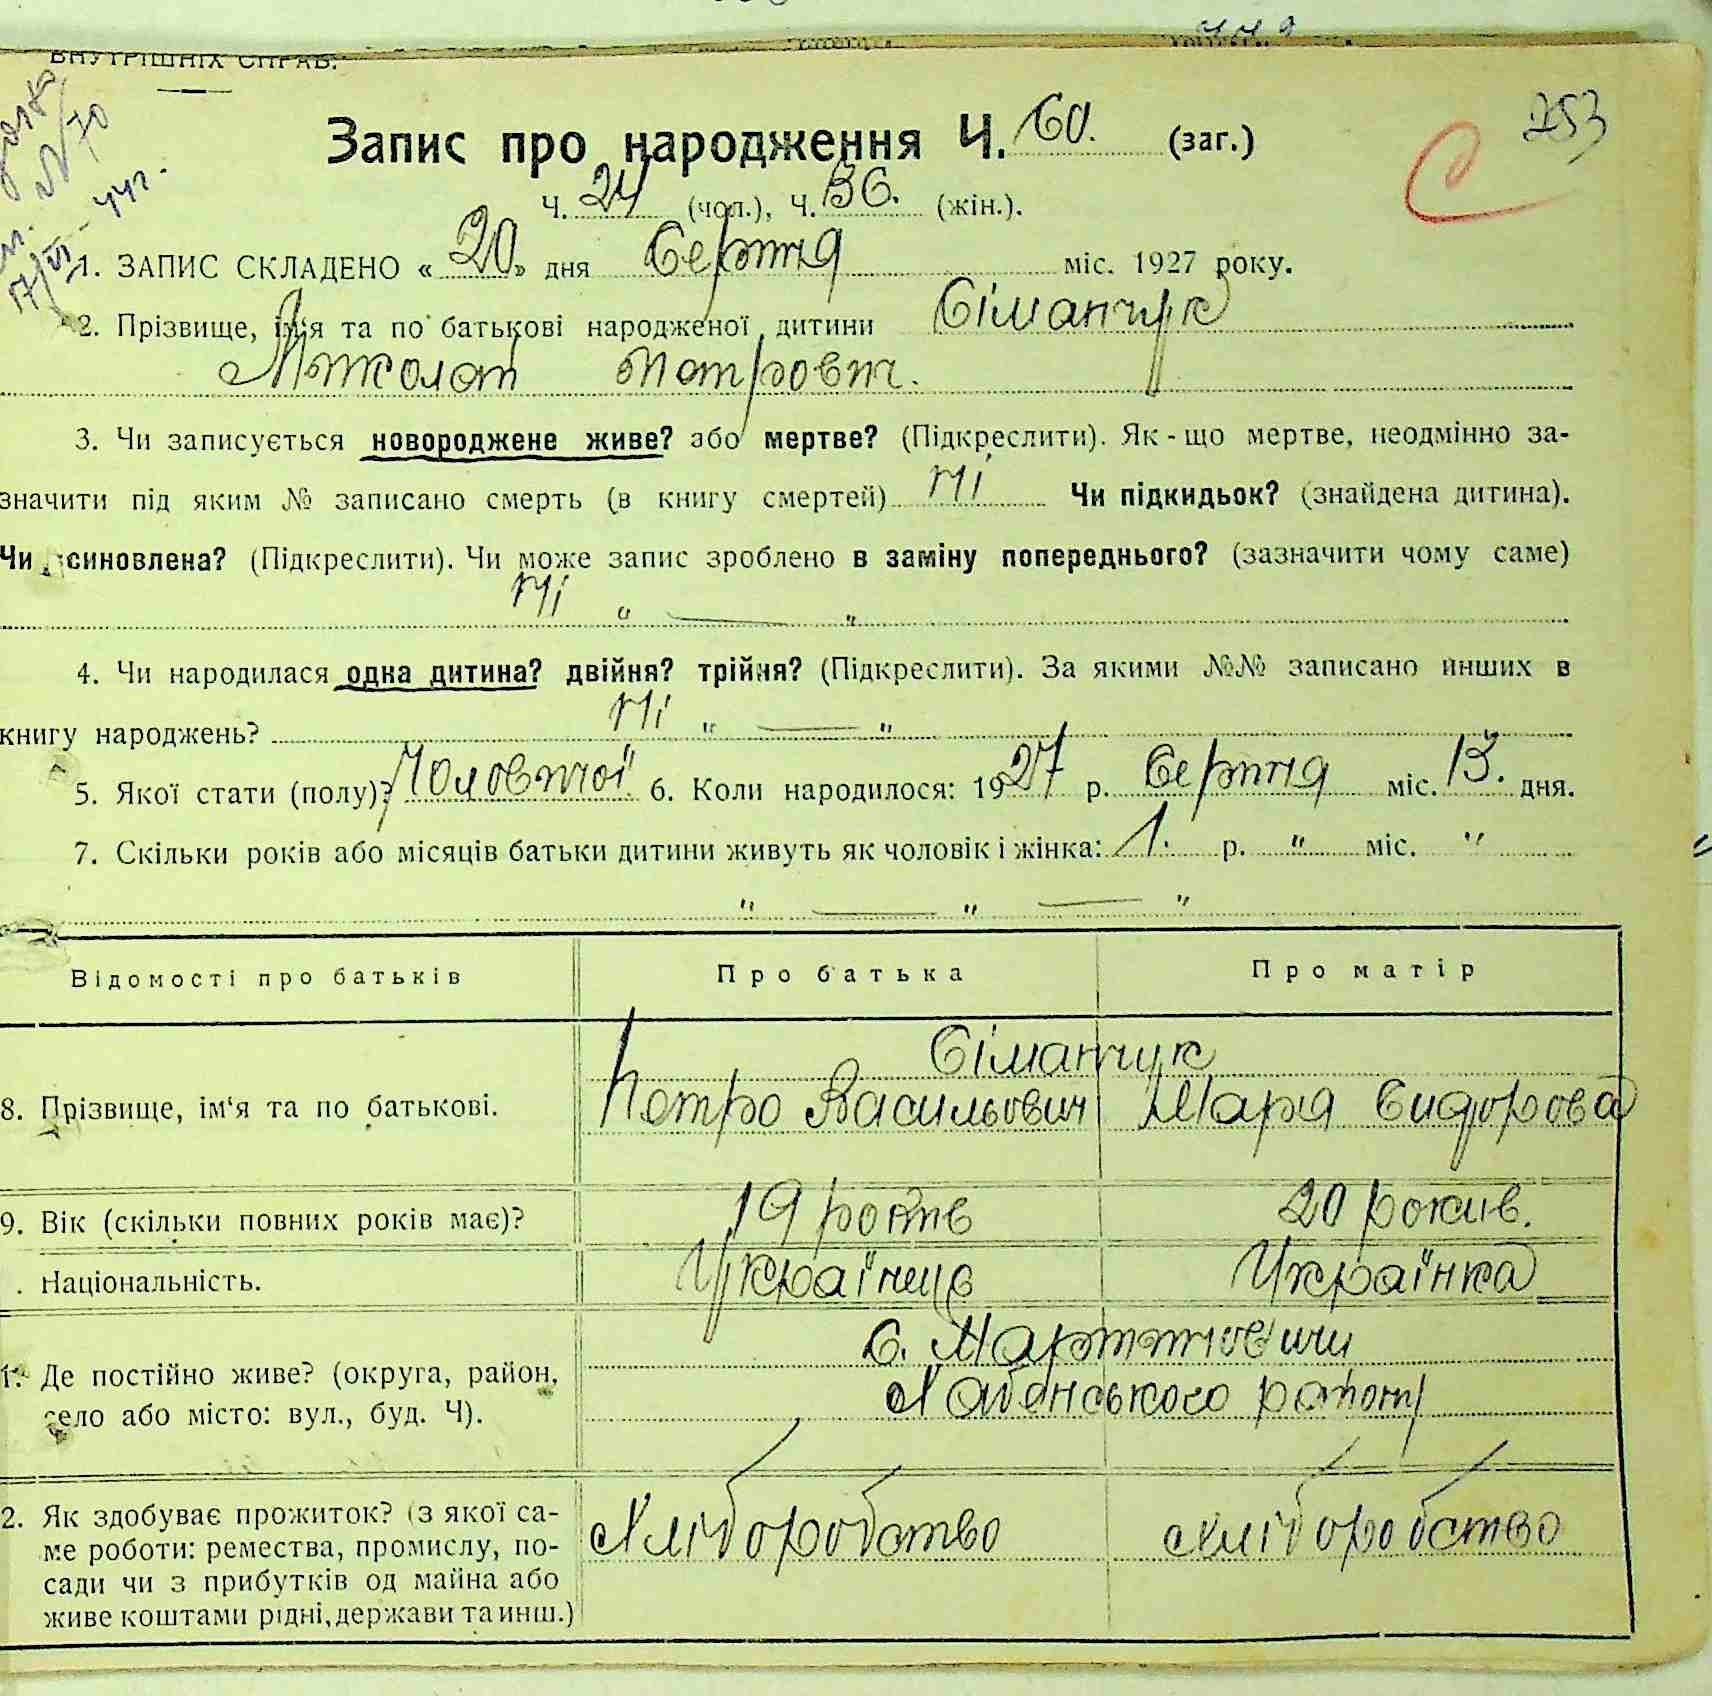 ВНУТРІШНІХ СПРАВ.
753
Запис про народження Ч. 60. (заг.)
Ч. 24 (чол.), Ч. 36. (жін.).
17/VI - 44г.
1. ЗАПИС СКЛАДЕНО « 20 » дня Серпня міс. 1927 року.
2. Прізвище, ім'я та по батькові народженої дитини Сіманчук
Миколай Петрович.
3. Чи записується новороджене живе? або мертве? (Підкреслити). Як-що мертве, неодмінно за-
значити під яким № записано смерть (в книгу смертей) Ні Чи підкидьок? (знайдена дитина).
Чи усиновлена? (Підкреслити). Чи може запис зроблено в заміну попереднього? (зазначити чому саме)
Ні " — "
4. Чи народилася одна дитина? двійня? трійня? (Підкреслити). За якими №№ записано инших в
книгу народжень? Ні " — "
5. Якої стати (полу)? Чоловічої 6. Коли народилося: 1927 р. Серпня міс. 13. дня.
7. Скільки років або місяців батьки дитини живуть як чоловік і жінка: 1. р. " міс. "
" — " — "
Відомості про батьків Про батька Про матір
Сіманчук
8. Прізвище, ім'я та по батькові. Петро Васильович Марія Сидорова
9. Вік (скільки повних років має)? 19 років 20 рокив.
Національність. Українець Українка
С. Мартиновичи
Де постійно живе? (округа, район,
Хабенського району
село або місто: вул., буд. Ч).
2. Як здобуває прожиток? (з якої са-
ме роботи: ремества, промислу, по- Хліборобство хліборобство
сади чи з прибутків од майна або
живе коштами рідні, держави та инш.)